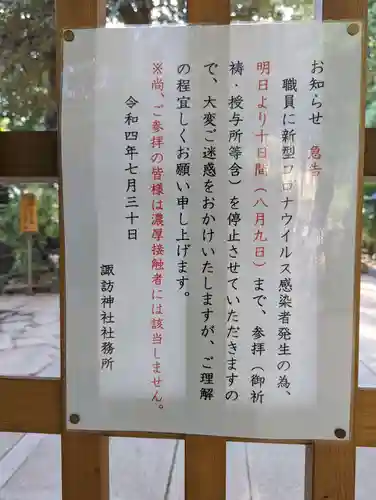 お知らせ 急告
職員に新型コロナウイルス感染者発生の為、
明日より十日間（八月九日）まで、参拝（御祈
祷・授与所等含）を停止させていただきますの
で、大変ご迷惑をおかけいたしますが、ご理解
の程宜しくお願い申し上げます。
※尚、ご参拝の皆様は濃厚接触者には該当しません。
令和四年七月三十日
諏訪神社社務所